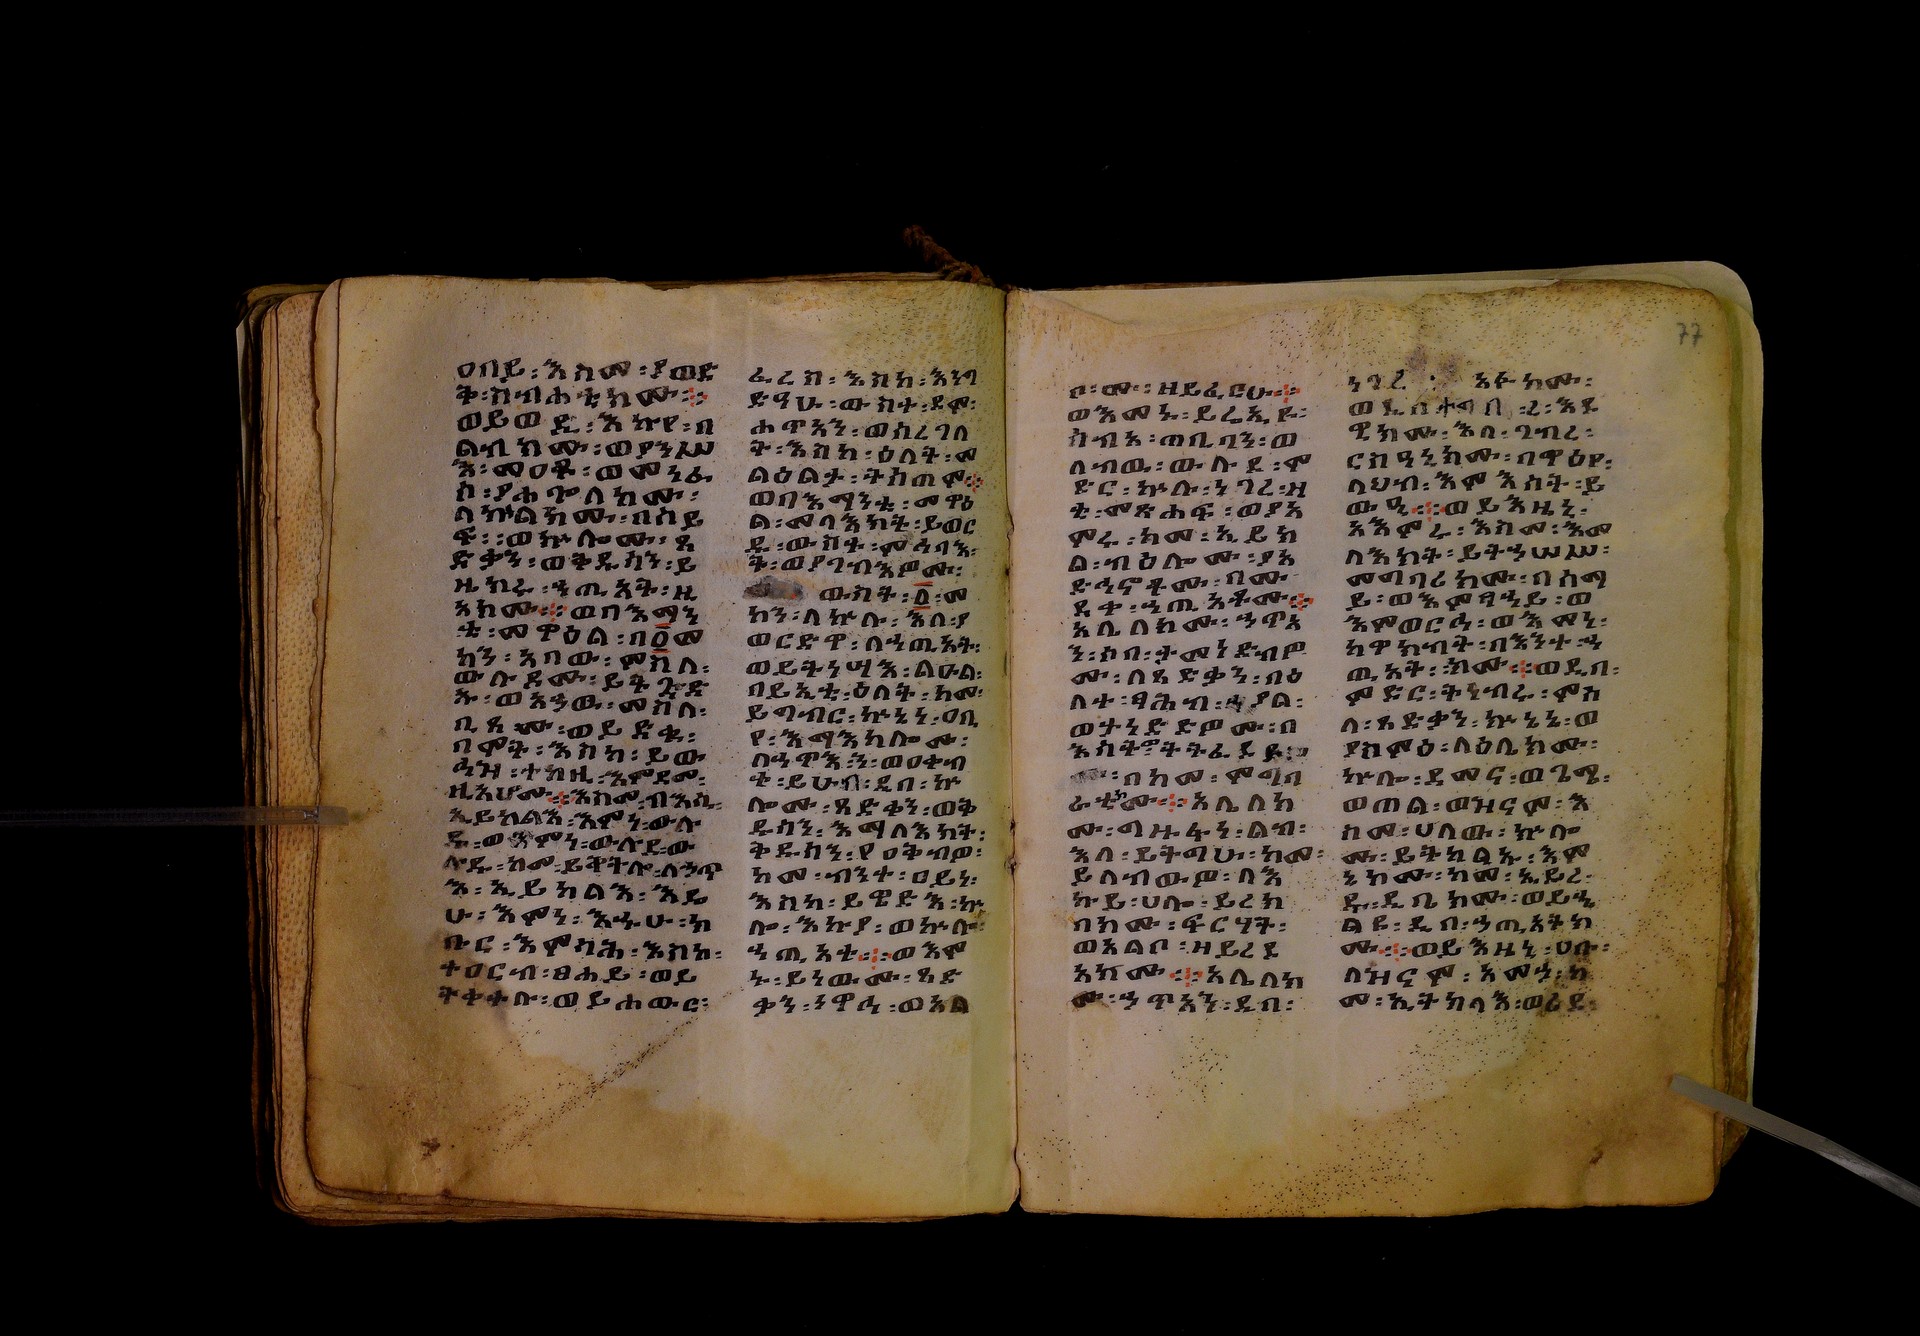 ዐቢይ፡እስመ፡ያወድ
ቅ፡ስብሐቲክሙ፡፡
ወይወ ፡እኩየ፡በ
ልብክሙ፡ወያንሥ
እ፡መዐቶ፡ወመንፈ
ስ፡ያሐጕለክሙ፡
ለኵልክሙ፡በሰይ
ፍ፡፡ወኵሎሙ፡ጻ
ድቃን፡ወቅዱሳን፡ይ
ዜክሩ፡ኃጢአት፡ዚ
አክሙ፡፡ወበእማን
ቱ፡መዋዕል፡በ፩መ
ካን፡አበው፡ምስለ፡
ውሉዶሙ፡ይት
ኡ፡ወአኃው፡ምስለ፡
ቢጾሙ፡ወይድቁ፡
በሞት፡እስከ፡ይው
ሕዝ፡ተከዚ፡እምደሞ፡
ዚአሆሙ፡፡እስመ፡ብእሲ፡
ኢይከልእ፡እምነ፡ውሉ
ዱ፡ወእምነ፡ውሉደ፡ው
ሉዱ፡ከመ፡ይቅትሎ፡
እ፡ኢይከልእ፡እዴ
ሁ፡እምነ፡እኁሁ፡ክ
ቡር፡እምጎሕ፡እስከ፡
ተዐርብ፡ፀሐይ፡ወይ
ትቀተሉ፡ወይሐውር፡
ፈረስ፡እስከ፡እንግ
ድዓሁ፡ውስተ፡ደሞ፡
ሐጥአን፡ወሰረገላ
ት፡እስከ፡ዕለት፡መ
ልዕልታ፡ትሰጠም፡፡
ወበእማንቱ፡መዋዕ
ል፡መላእክት፡ይወር
ዱ፡ውስተ፡ምኅባእ
ት፡ወያገብእዎሙ፡
ውስተ፡፩፡መ
ካን፡ለኵሉ፡እለ፡ያ
ወርድዋ፡ለኃጢአት፡
ወይትነሣእ፡ልዑል፡
በይእቲ፡ዕለት፡ከመ፡
ይግብር፡ኵነኔ፡ዐቢ
የ፡እማእከሎሙ፡
ለኃጥአን፡ወዐቀብ
ተ፡ይሁብ፡ዲበ፡ኵ
ሎሙ፡ጻድቃን፡ወቅ
ዱሳን፡እማላእክት፡
ቅዱሳን፡የዐቅብዎ፡
ከመ፡ብንተ፡ዐይን፡
እስከ፡ይዌድእ፡ኵ
ሎ፡እኩየ፡ወኵሎ፡
ኃጢአተ፡፡ወእም
ኒ፡ይነውሙ፡ጻድ
ቃን፡ነዋኃ፡ወአል
ቦ፡ሙ፡ዘይፈርሁ፡፡
ወእመኒ፡ይሬእዩ፡
ሰብአ፡ጠቢባን፡ወ
ለብዉ፡ውሉደ፡ም
ድር፡ኵሎ፡ነገረ፡ዛ
ቲ፡መጽሐፍ፡ወያአ
ምሩ፡ከመ፡ኢይክ
ል፡ብዕሎሙ፡ያአ
ድኅኖቶሙ፡በሙ
ደተ፡ኃጢአቶሙ፡፡
አሌለክሙ፡ኃጥአ
ን፡ሶበ፡ታመነድብዎ
ሙ፡ለጻድቃን፡በዕ
ለተ፡ፃሕብ፡ኀያል፡
ወትነድድዎሙ፡በ
እሳት
በከመ፡ምግባ
ራቲክሙ፡፡አሌለክ
ሙ፡ግዙፋነ፡ልብ፡
እለ፡ይተግሁ፡ከመ፡
ይለብውዎ፡ለእ
ኩይ፡ሀሎ፡ይረክ
በክሙ፡ፍርሃት፡
ወአልቦ፡ዘይረድ
አክሙ፡፡አሌለክ
ሙ፡ኃጥአን፡ዲበ፡
ነገረ፡አፉክሙ፡
ወዲበ
ዊክሙ፡እለ፡ገብረ፡
ርስዓኒክሙ፡በዋዕየ፡
ላህብ፡እምእሳት፡ይ
ውዒ፡፡ወይእዜኒ፡
አእምሩ፡እስመ፡እመ
ላእክት፡ይትኃሠሥ፡
መግባረክሙ፡በሰማ
ይ፡ወእምፃሓይ፡ወ
እምወርኅ፡ወእምኒ፡
ከዋክብት፡በእንተ፡ኃ
ጢአት፡ክሙ፡፡ወዲበ፡
ምድር፡ትገብሩ፡ምስ
ለ፡ጻድቃን፡ኵነኔ፡ወ
ያሰምዕ፡ላዕሌክሙ፡
ኵሎ፡ደመና፡ወጊሜ፡
ወጠል፡ወዝናም፡እ
ስመ፡ሀለው፡ኵሎ
ሙ፡ይትከልኡ፡እም
ኔክሙ፡ከመ፡ኢይረ፡
ዱ፡ዲቤክሙ፡ወይኄ
ልዩ፡ዲበ፡ኃጢአትክ
ሙ፡፡ወይእዜኒ፡ሀቡ፡
ለዝናም፡አምኃ፡ከ
መ፡ኢትከላእ፡ወሪደ፡
77